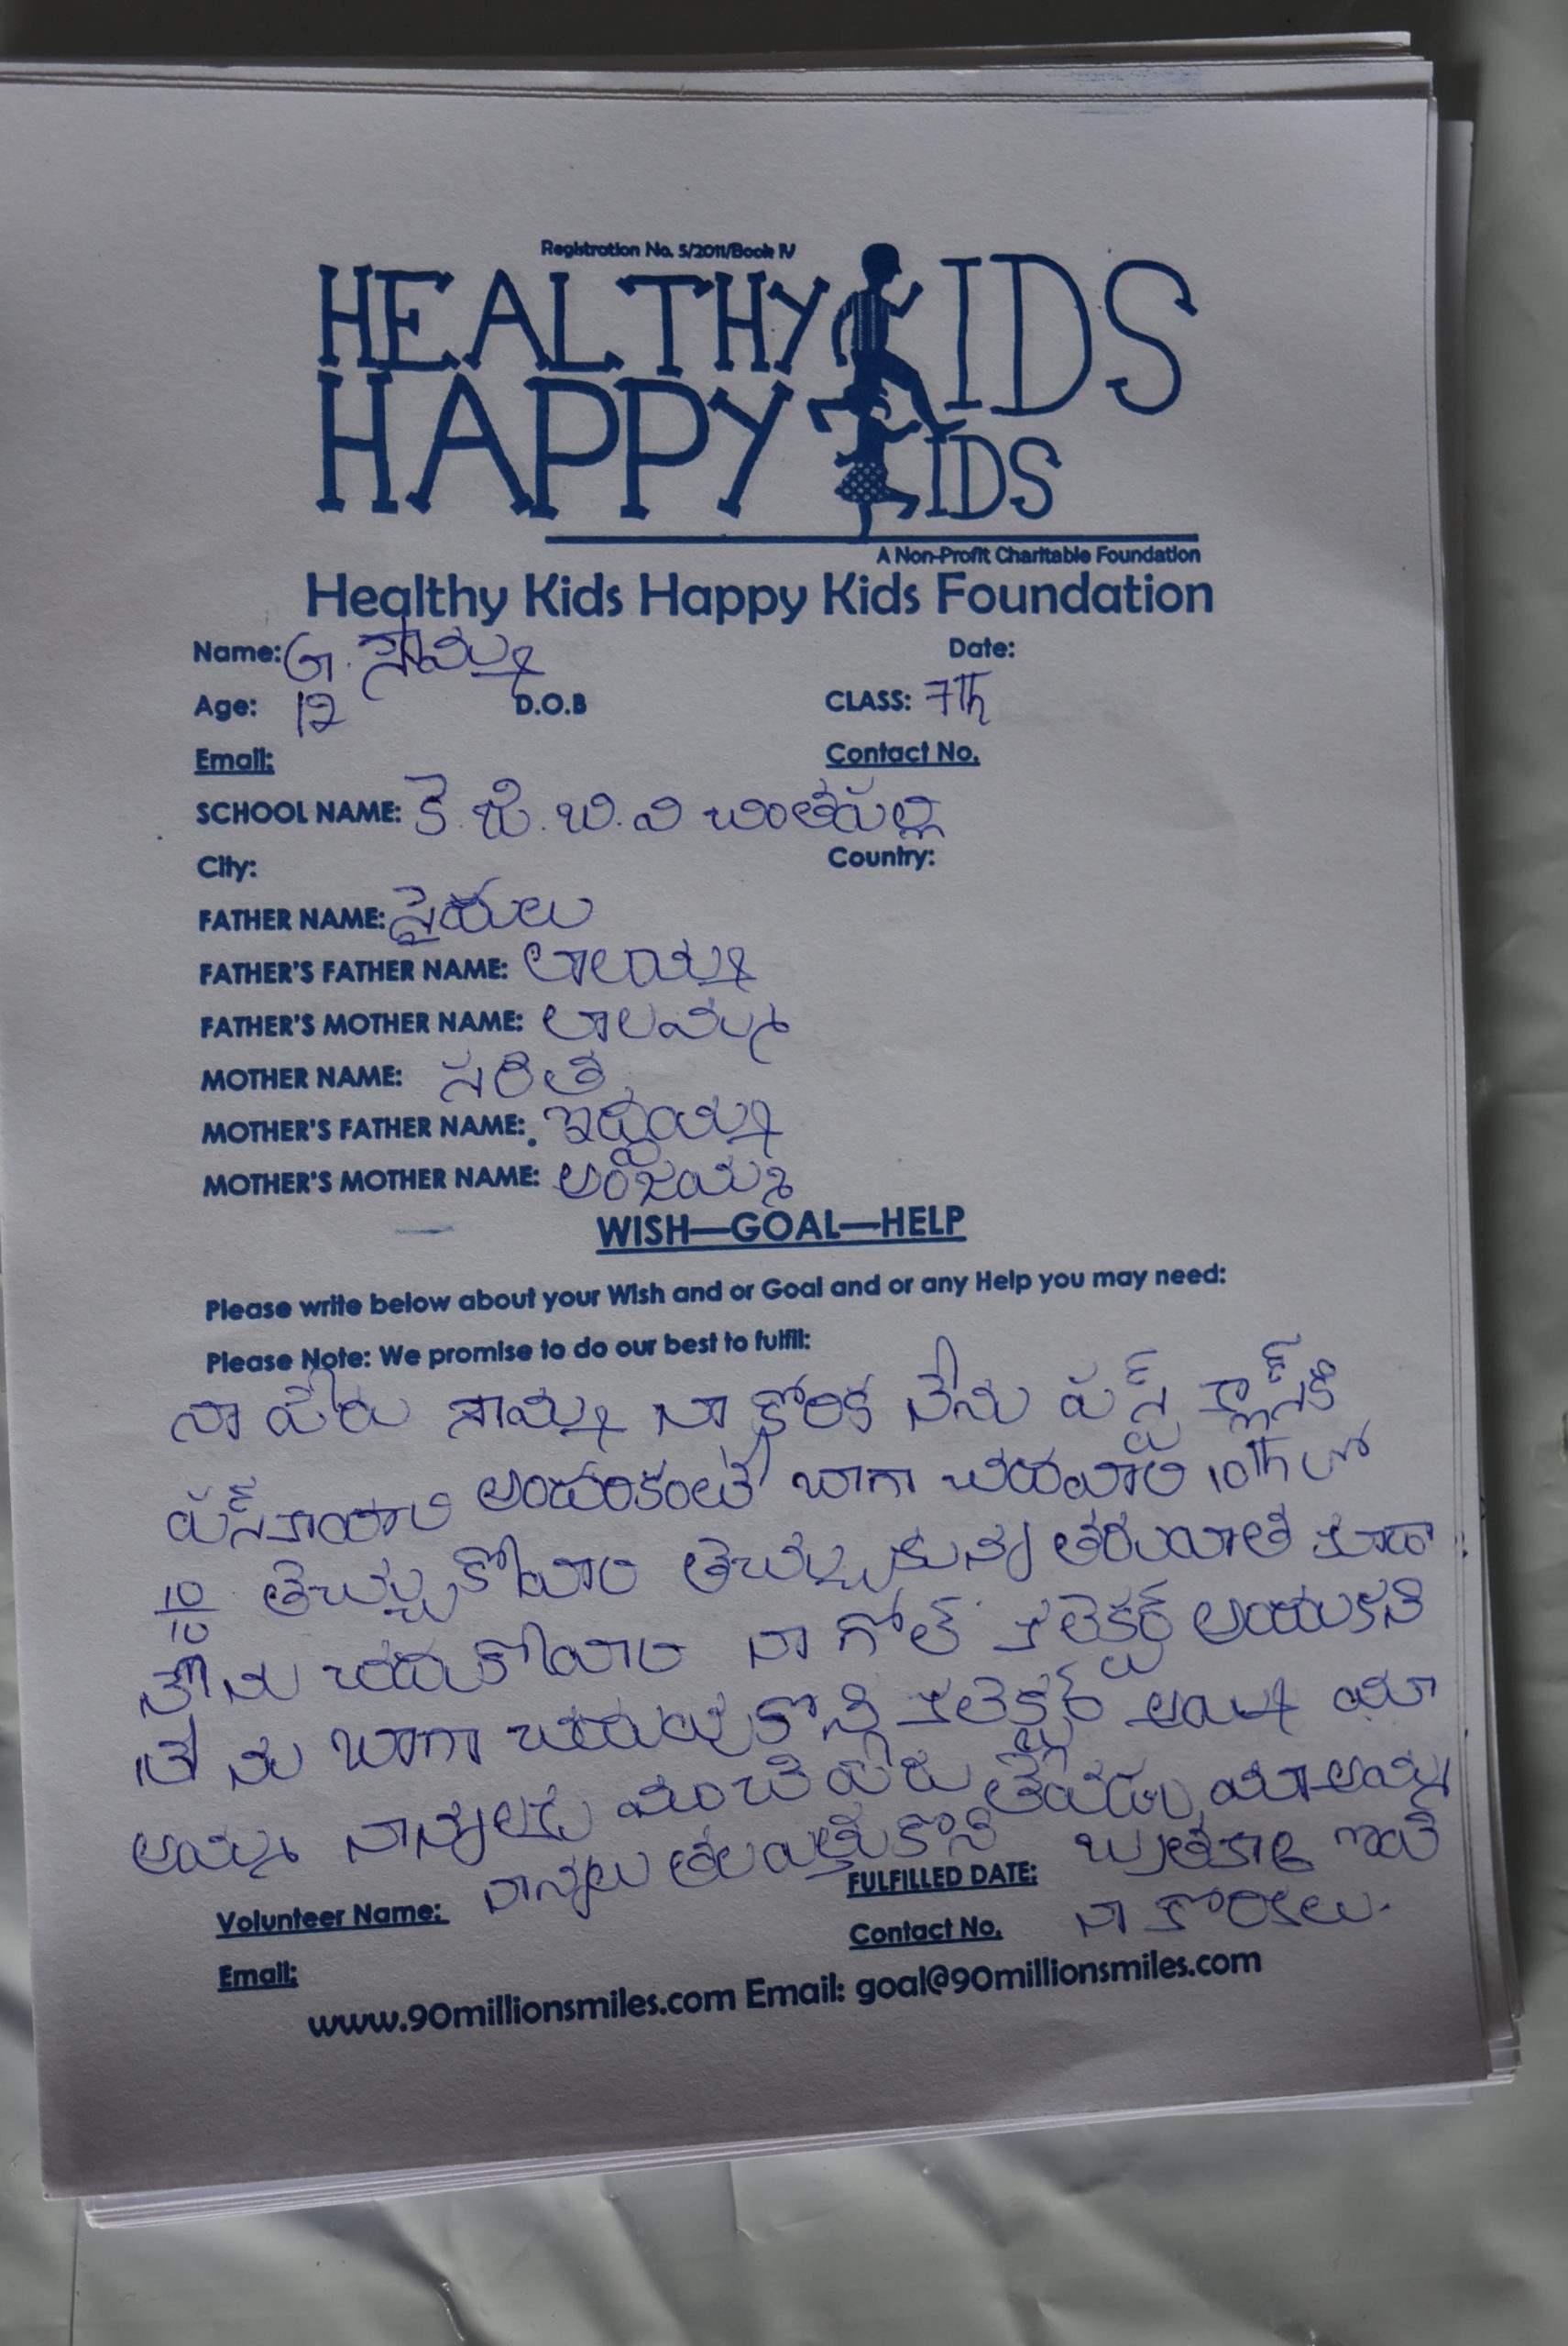 Registration No. 5/2011/Book IV
HEALTHY KIDS
HAPPY KIDS
A Non-Profit Charitable Foundation
Healthy Kids Happy Kids Foundation
Name: G. సౌమ్య Date:
Age: 12 D.O.B CLASS: 7th
Email: Contact No.
SCHOOL NAME: కె. జి. బి. వి చింతపల్లి
City: Country:
FATHER NAME: సైదులు
FATHER'S FATHER NAME: లాలయ్య
FATHER'S MOTHER NAME: లాలమ్మ
MOTHER NAME: సరిత
MOTHER'S FATHER NAME:
MOTHER'S MOTHER NAME:
WISH—GOAL—HELP
Please write below about your Wish and or Goal and or any Help you may need:
Please Note: We promise to do our best to fulfil:
నా పేరు సౌమ్య నా కోరిక నేను పస్ట్ క్లాస్‌కి
పస్‌రావాలి అందరికంటే బాగా చదవాలి 10th లో
10/10 తెచ్చుకోవాలి తెచ్చుకున్న తరువాత కూడా
నేను చదుకోవాలి నా గోల్ కలెక్టర్
నేను బాగా చదువుకొన్ని కలెక్టర్ అయ్యి మా
అమ్మ నాన్నలకు మంచి పేరు మా అమ్మ
నాన్నలు తల ఎత్తుకొని బ్రతకాలి ఇవి
నా కోరికలు.
Volunteer Name: FULFILLED DATE:
Email: Contact No.
www.90millionsmiles.com Email: goal@90millionsmiles.com